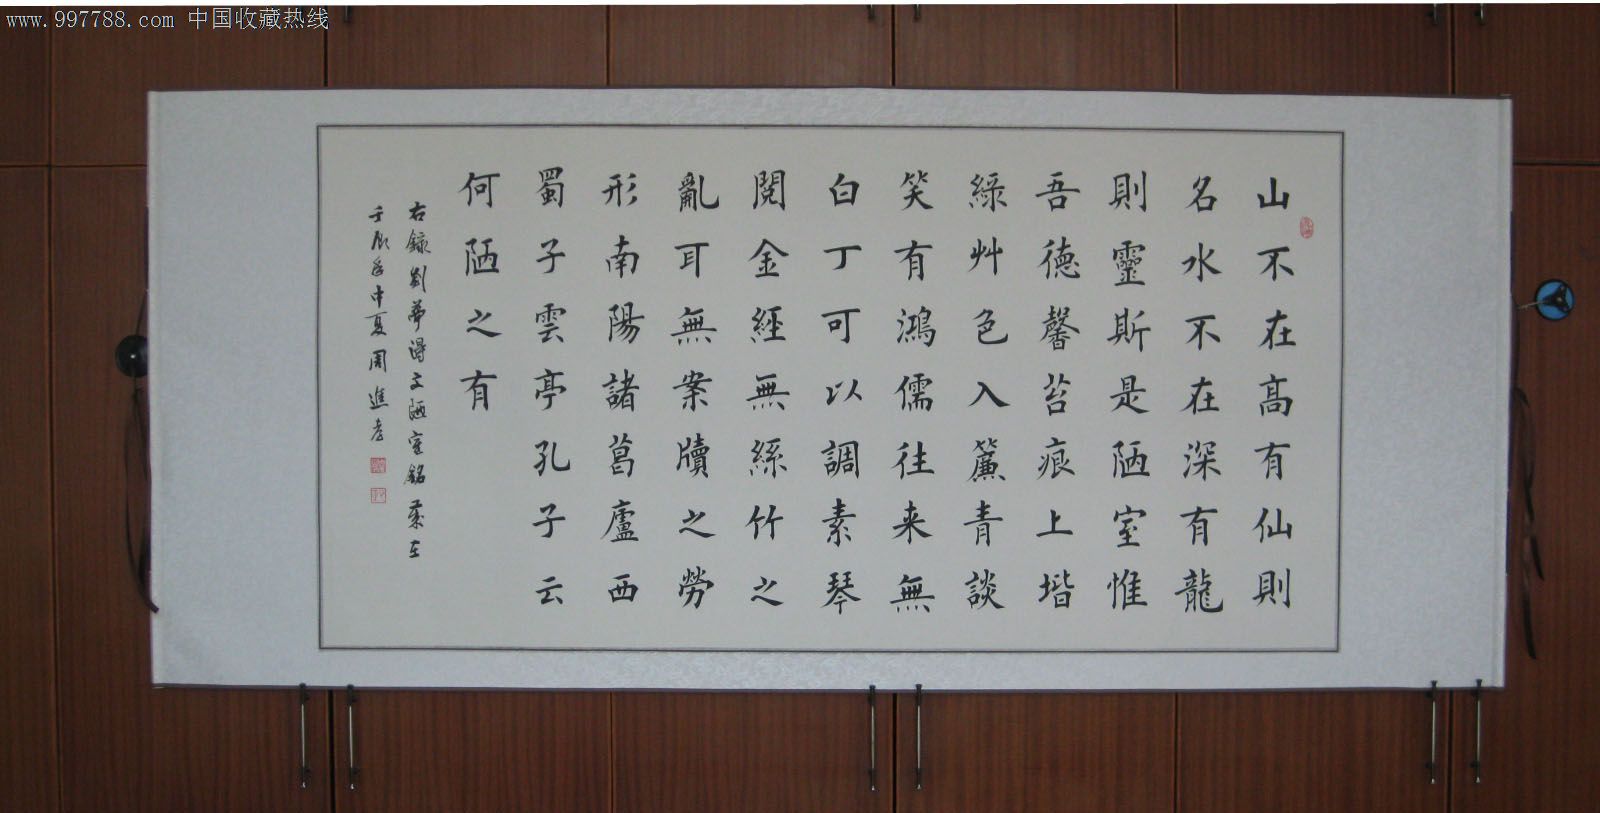 www.997788.com 中国收藏热线
山不在高有仙則
名水不在深有龍
則靈斯是陋室惟
吾德馨苔痕上堦
綠艸色入簾青談
笑有鴻儒往来無
白丁可以調素琴
閱金經無絲竹之
亂耳無案牘之勞
形南陽諸葛廬西
蜀子雲亭孔子云
何陋之有
右録劉夢得文陋室銘
壬辰年中夏周進